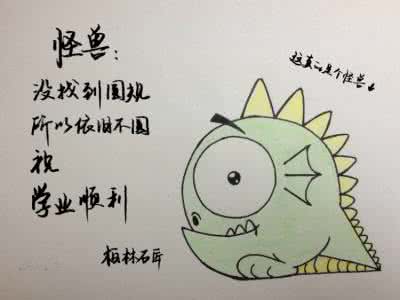 怪兽：
没找到圆规
所以依旧不圆
祝
学业顺利
板林石匠
这真的是个怪兽